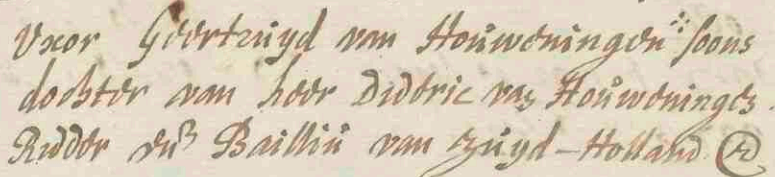 Uxor Geertruyd van Houweningen soons
dochter van heer Dideric van Houweningen
Ridder en Bailliu van Zuyd-Holland